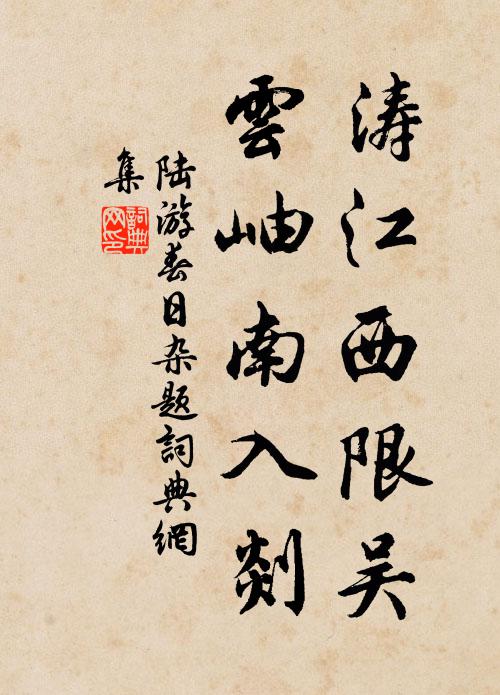 涛江西限吴
雲岫南入剡
陆游春日杂题詞典網
集
詞典网印